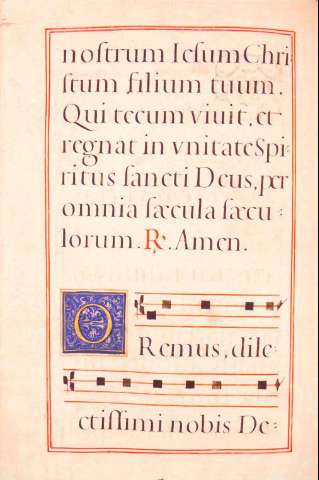 nostrum Iesum Chri-
stum filium tuum.
Qui tecum viuit, et
regnat in vnitate Spi-
ritus sancti Deus, per
omnia sæcula sæcu-
lorum. ℟. Amen.
ORemus, dile-
ctissimi nobis De-